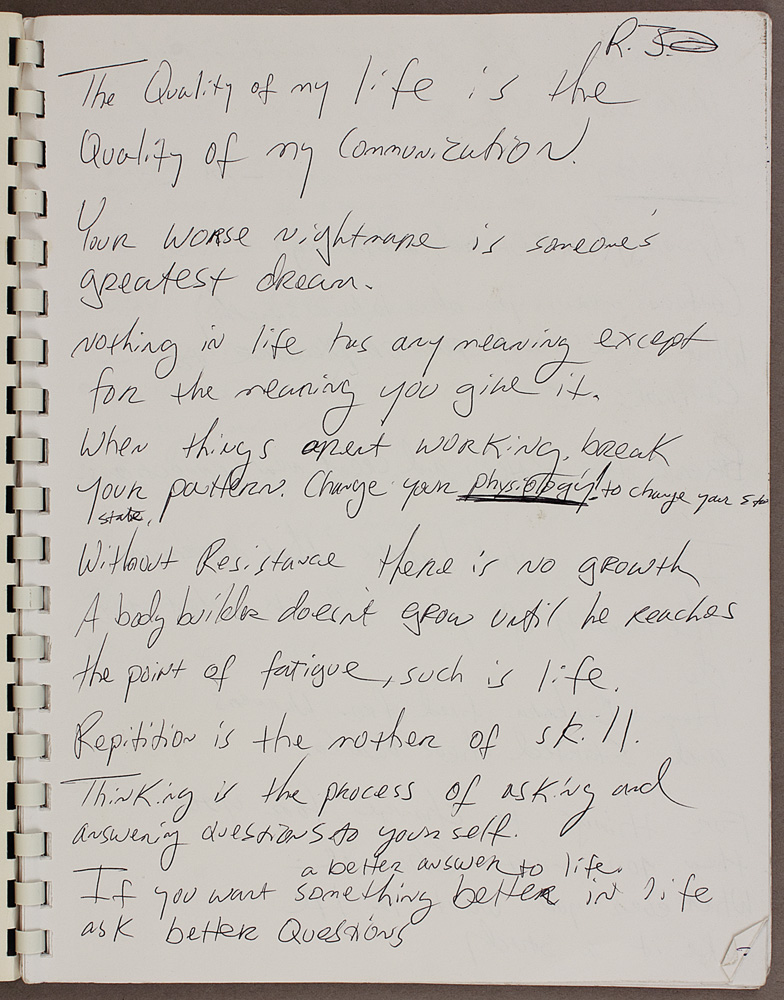 R. J.
The Quality of my life is the
Quality of my Communication.
Your worse nightmare is someone's
greatest dream.
nothing in life has any meaning except
for the meaning you give it.
When things arent working, break
your pattern. Change your physiology! to change your
state.
Without Resistance there is no growth
A body builder doesn't grow until he reaches
the point of fatigue, such is life.
Repitition is the mother of skill.
Thinking is the process of asking and
answering questions to yourself.
a better answer to life.
If you want something better in life
ask better Questions